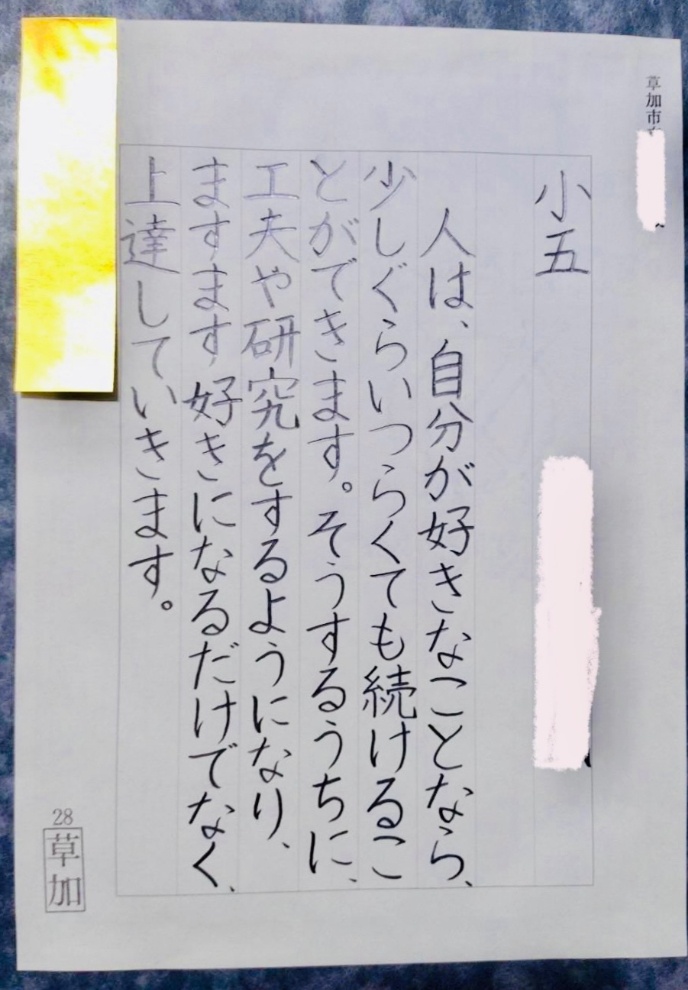 草加市
小五
人は、自分が好きなことなら、
少しぐらいつらくても続けるこ
とができます。そうするうちに、
工夫や研究をするようになり、
ますます好きになるだけでなく、
上達していきます。
28
草加